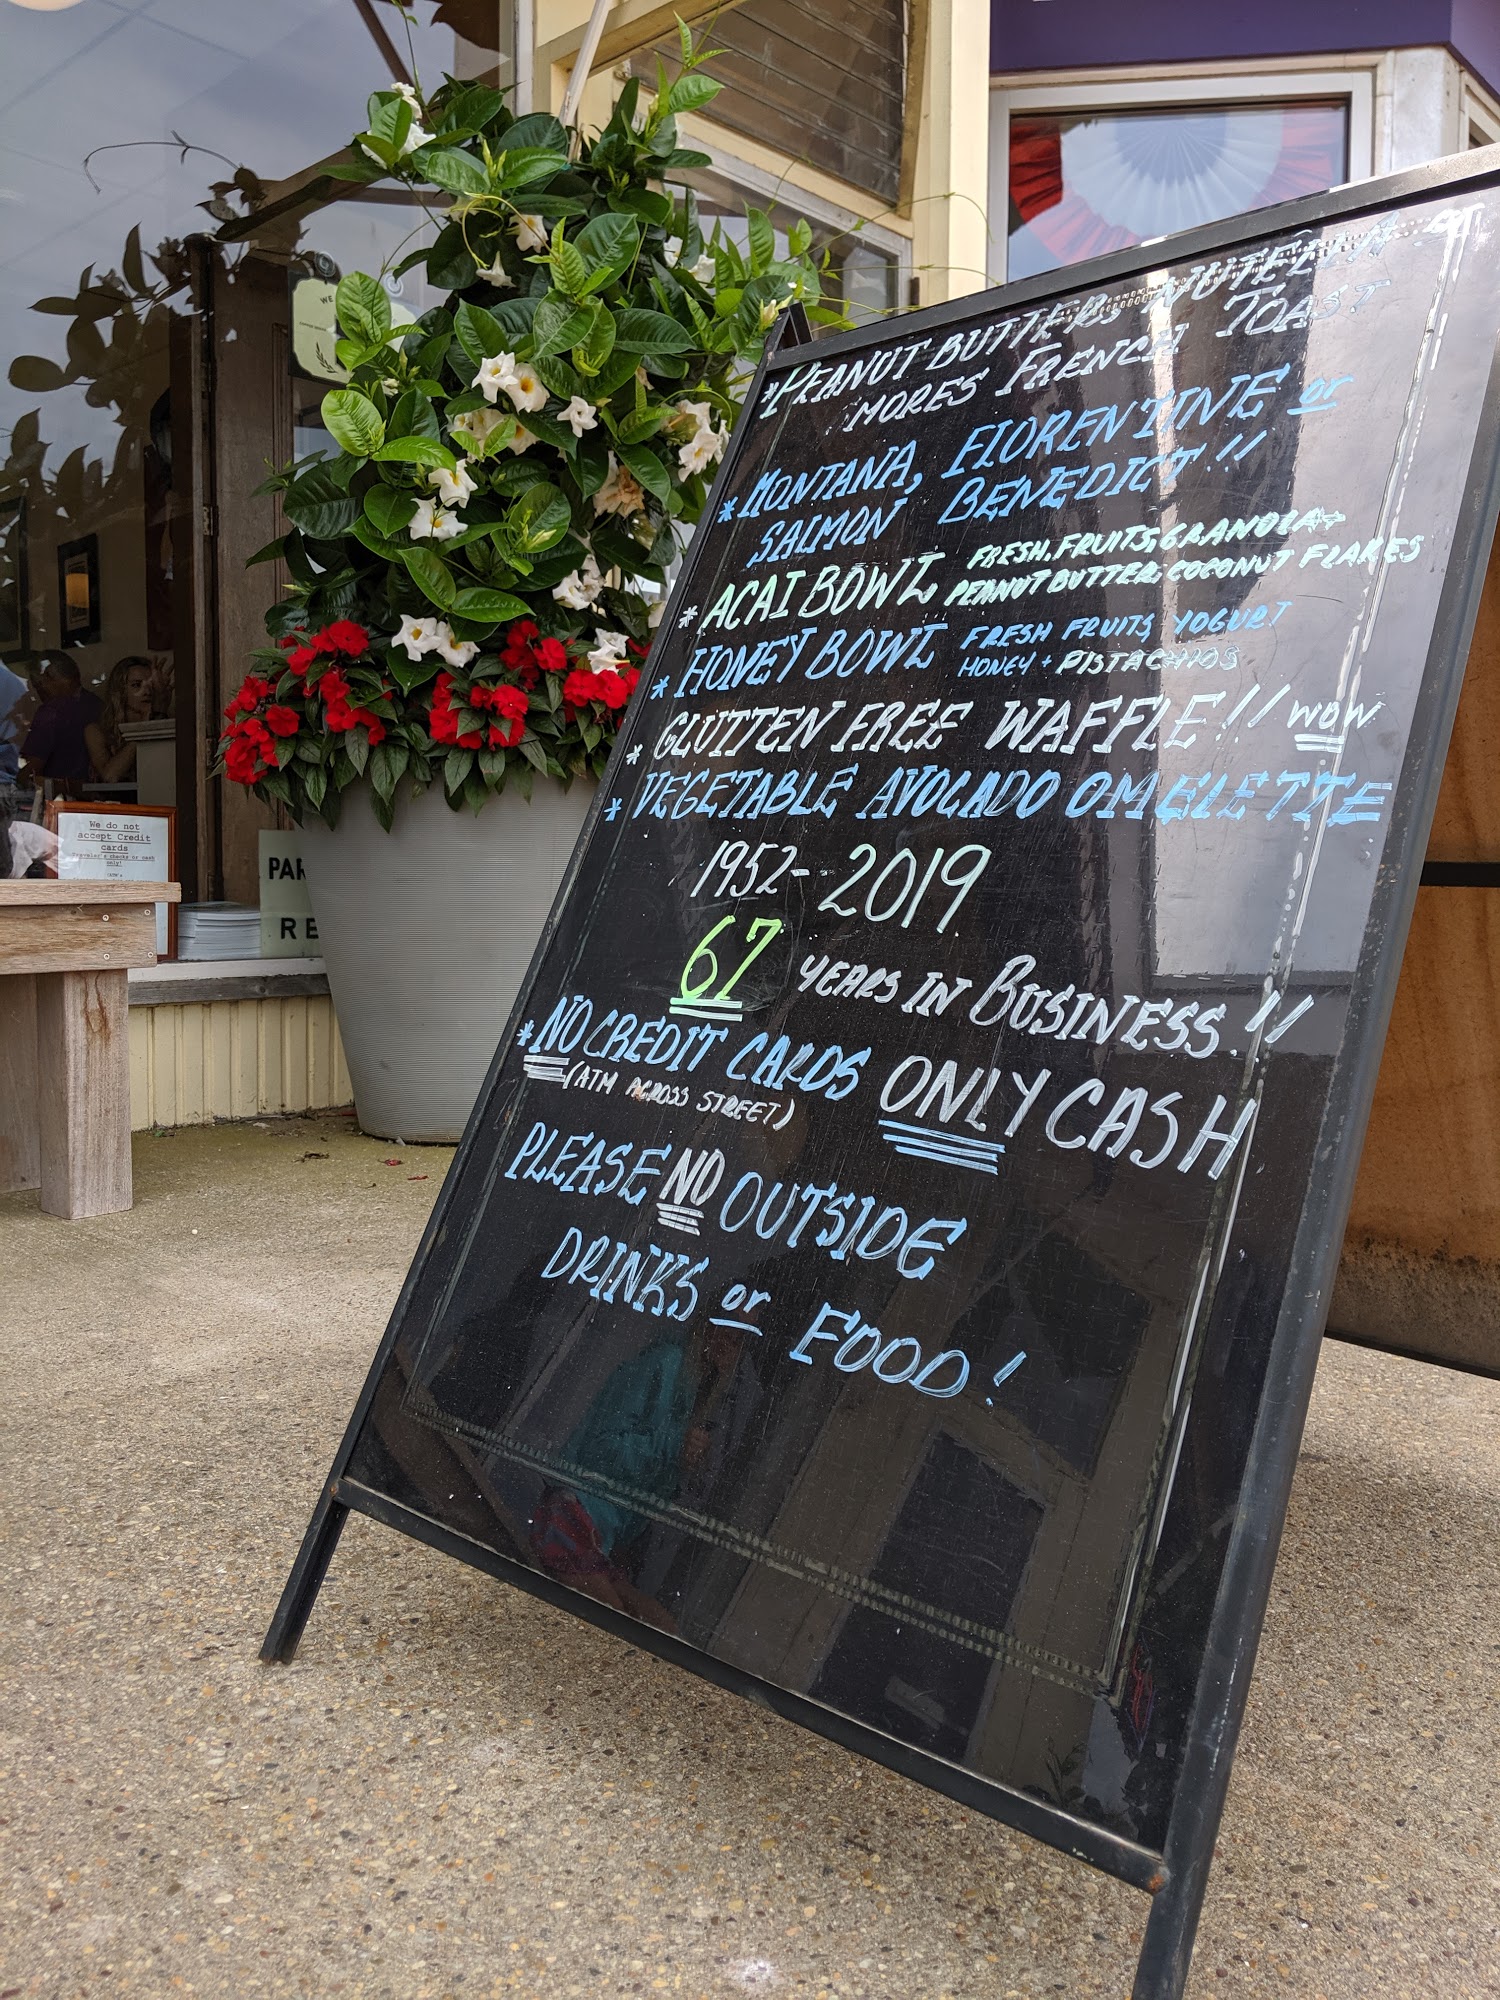 *PEANUT BUTTER, NUTELLA or
MORES FRENCH TOAST
*MONTANA, FLORENTINE or
SALMON BENEDICT!!
*ACAI BOWL FRESH, FRUITS, GRANOLA+
PEANUT BUTTER, COCONUT FLAKES
*HONEY BOWL FRESH FRUITS, YOGURT
HONEY + PISTACHIOS
*GLUTTEN FREE WAFFLE!! WOW
*VEGETABLE AVOCADO OMELETTE
1952--2019
67 YEARS IN BUSINESS!!
*NO CREDIT CARDS ONLY CASH
(ATM ACROSS STREET)
PLEASE NO OUTSIDE
DRINKS or FOOD!
WE
We do not
accept Credit
cards
Traveler's checks or cash
only!
PAR
RE